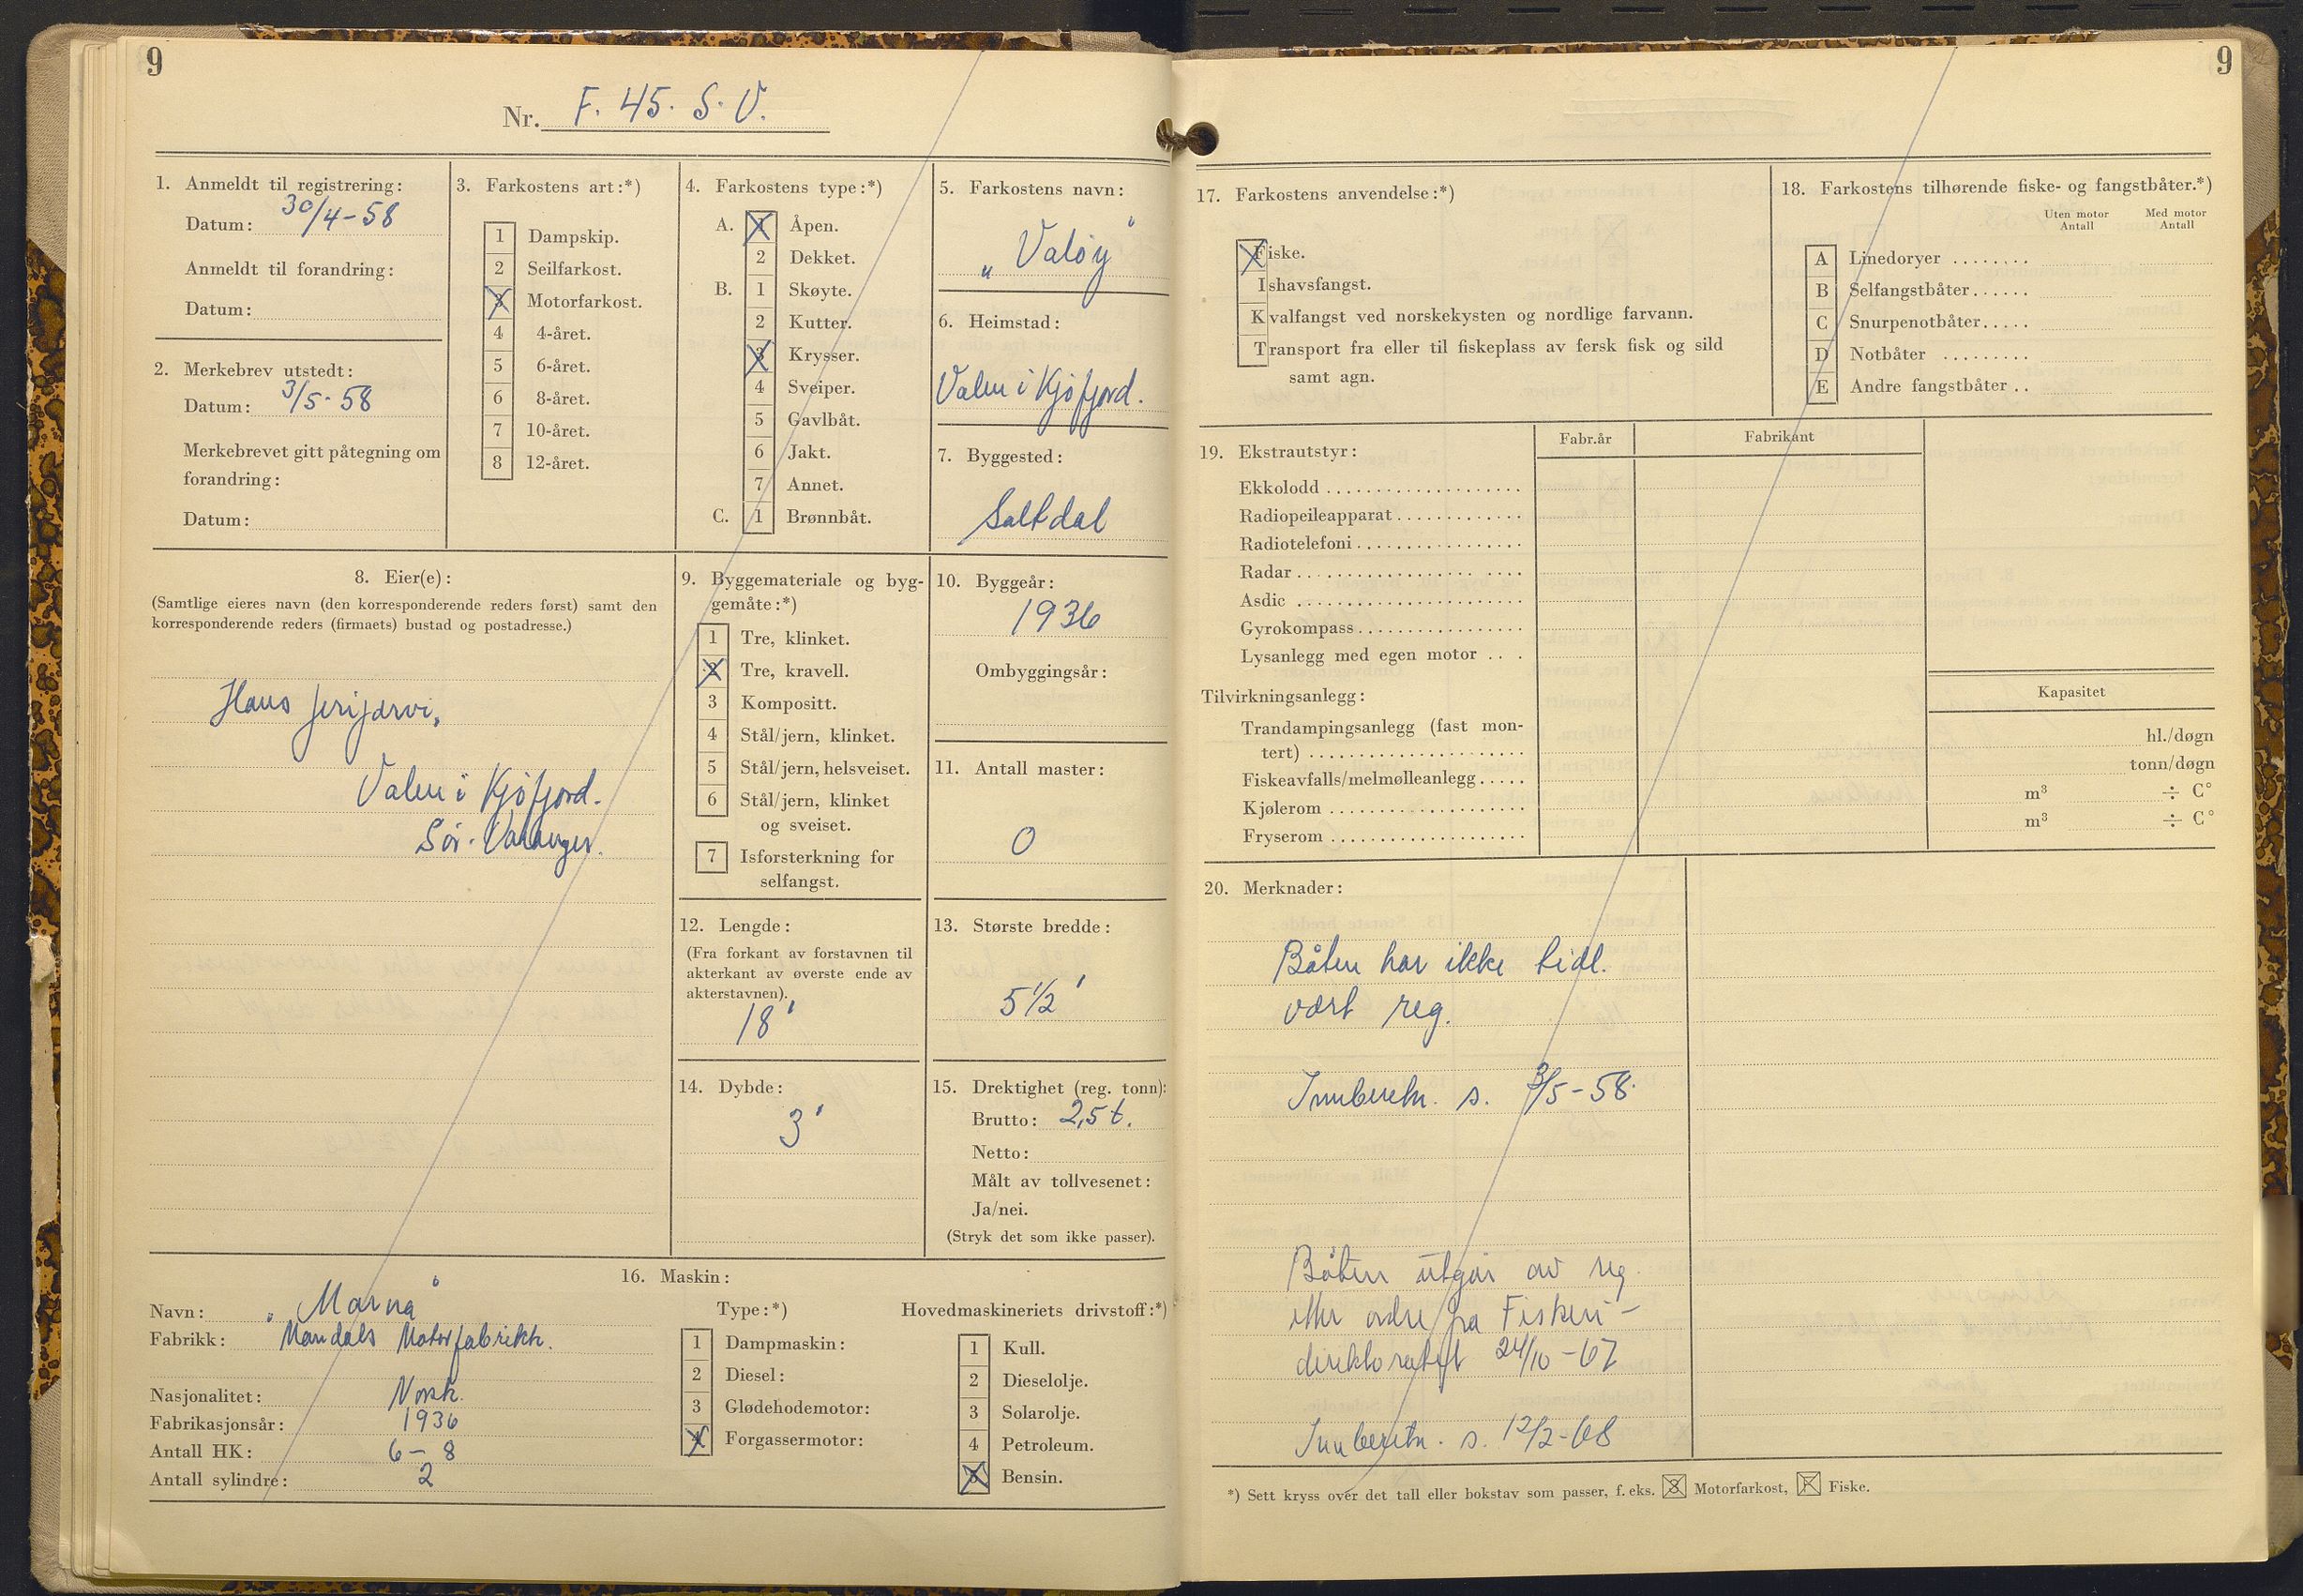 9
Nr. F. 45. S. V.
1. Anmeldt til registrering:
Datum: 30/4-58
Anmeldt til forandring:
Datum:
2. Merkebrev utstedt:
Datum: 3/5-58
Merkebrevet gitt påtegning om
forandring:
Datum:
3. Farkostens art:*)
1 Dampskip.
2 Seilfarkost.
3 Motorfarkost.
4 4-året.
5 6-året.
6 8-året.
7 10-året.
8 12-året.
4. Farkostens type:*)
A. 1 Åpen.
2 Dekket.
B. 1 Skøyte.
2 Kutter.
3 Krysser.
4 Sveiper.
5 Gavlbåt.
6 Jakt.
7 Annet.
C. 1 Brønnbåt.
5. Farkostens navn:
„Valøy"
6. Heimstad:
Valen i Kjøfjord.
7. Byggested:
Saltdal
8. Eier(e):
(Samtlige eieres navn (den korresponderende reders først) samt den
korresponderende reders (firmaets) bustad og postadresse.)
Hans Jerijærvi,
Valen i Kjøfjord.
Sør-Varanger.
9. Byggemateriale og byg-
gemåte:*)
1 Tre, klinket.
2 Tre, kravell.
3 Kompositt.
4 Stål/jern, klinket.
5 Stål/jern, helsveiset.
6 Stål/jern, klinket
og sveiset.
7 Isforsterkning for
selfangst.
10. Byggeår:
1936
Ombyggingsår:
11. Antall master:
0
12. Lengde:
(Fra forkant av forstavnen til
akterkant av øverste ende av
akterstavnen).
18'
13. Største bredde:
5 1/2'
14. Dybde:
3'
15. Drektighet (reg. tonn):
Brutto: 2,5 t.
Netto:
Målt av tollvesenet:
Ja/nei.
(Stryk det som ikke passer).
16. Maskin:
Navn: „Marna"
Fabrikk: Mandals Motorfabrikk.
Nasjonalitet: Norsk.
Fabrikasjonsår: 1936
Antall HK: 6-8
Antall sylindre: 2
Type:*)
1 Dampmaskin:
2 Diesel:
3 Glødehodemotor:
4 Forgassermotor:
Hovedmaskineriets drivstoff:*)
1 Kull.
2 Dieselolje.
3 Solarolje.
4 Petroleum.
5 Bensin.
9
17. Farkostens anvendelse:*)
Fiske.
Ishavsfangst.
Kvalfangst ved norskekysten og nordlige farvann.
Transport fra eller til fiskeplass av fersk fisk og sild
samt agn.
18. Farkostens tilhørende fiske- og fangstbåter.*)
Uten motor Med motor
Antall Antall
A Linedoryer ........
B Selfangstbåter......
C Snurpenotbåter.....
D Notbåter .........
E Andre fangstbåter ..
19. Ekstrautstyr:
Fabr.år Fabrikant
Ekkolodd ....................
Radiopeileapparat .............
Radiotelefoni .................
Radar ......................
Asdic .......................
Gyrokompass .................
Lysanlegg med egen motor ....
Tilvirkningsanlegg:
Kapasitet
Trandampingsanlegg (fast mon-
tert) ...................... hl./døgn
Fiskeavfalls/melmølleanlegg ..... tonn/døgn
Kjølerom .................... m³ ÷ C°
Fryserom .................... m³ ÷ C°
20. Merknader:
Båten har ikke tidl.
vært reg.
Innberetn. s. 3/5-58.
Båten utgår av reg.
etter ordre fra Fiskeri-
direktoratet 24/10-67
Innberetn. s. 12/2-68
*) Sett kryss over det tall eller bokstav som passer, f. eks. 3 Motorfarkost, F Fiske.